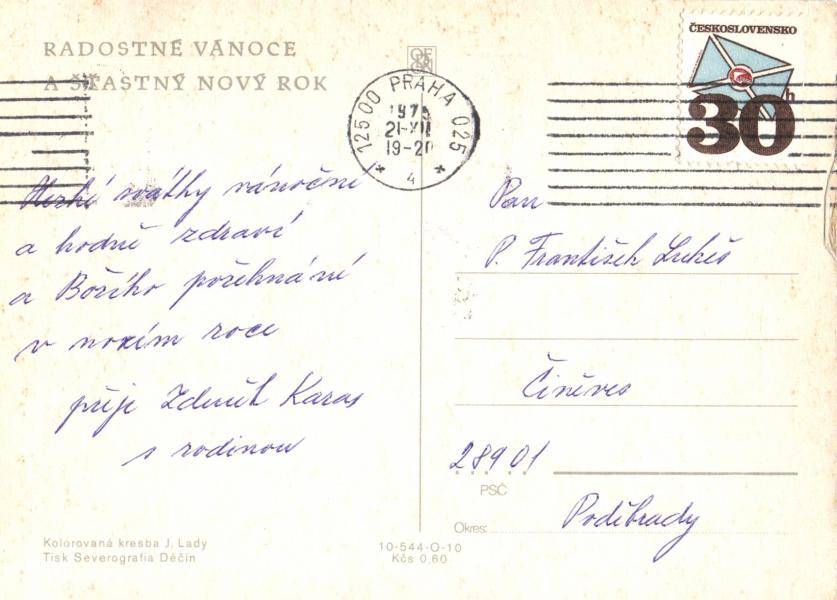 RADOSTNÉ VÁNOCE
A ŠŤASTNÝ NOVÝ ROK
ČESKOSLOVENSKO
30h
12500 PRAHA 025
1975
21-XII
19-20
4
Hezké svátky vánoční
a hodně zdraví
a Božího požehnání
v novém roce
přeje Zdeněk Karas
s rodinou
Pan
P. František Lukeš
Činěves
28901
PSČ
Okres: Poděbrady
Kolorovaná kresba J. Lady
Tisk Severografia Děčín
10-544-O-10
Kčs 0,60